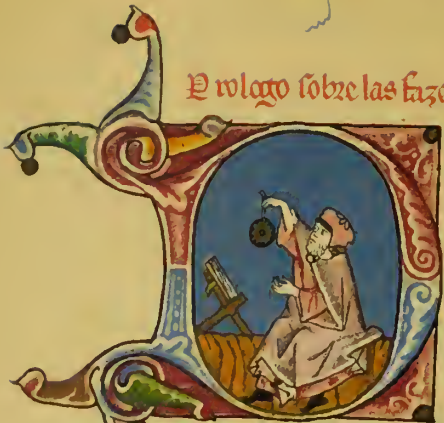 Prologo sobre las faze